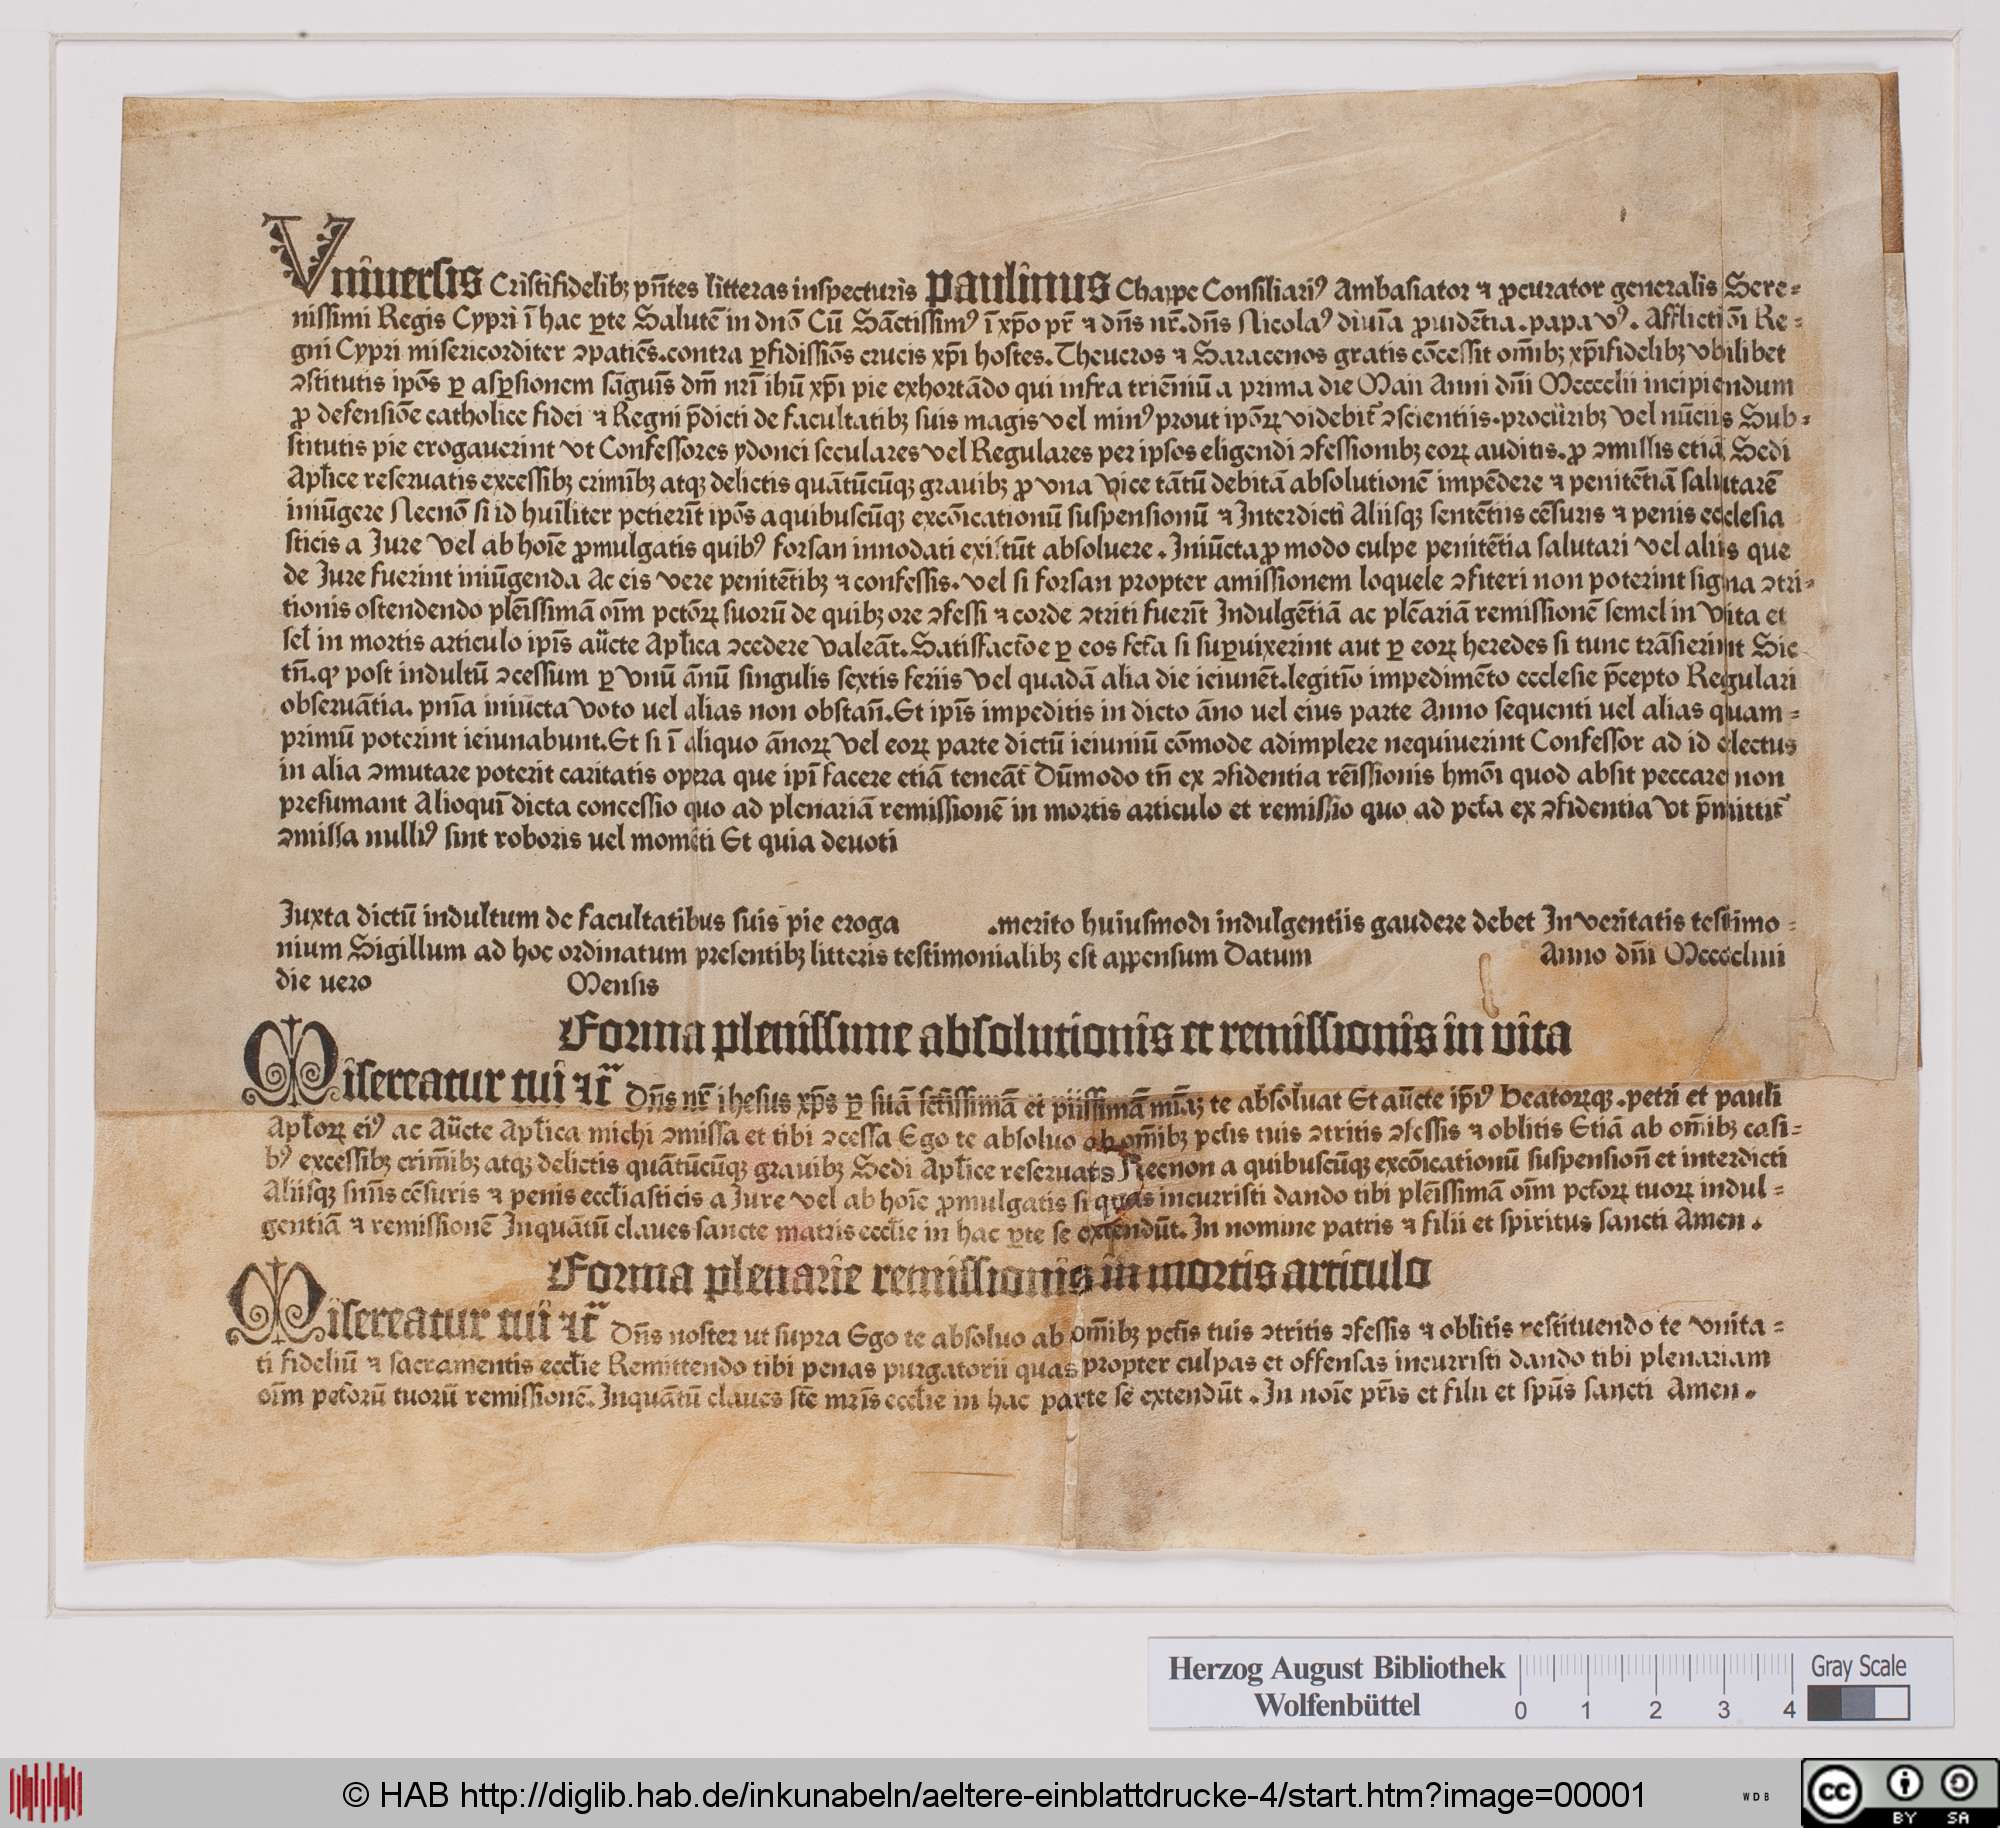 Vniuersis Cristifidelibꝫ pn̄tes litteras inspecturis Paulinus Chappe Consiliariꝰ Ambasiator ⁊ ꝓcurator generalis Sere⸗
nissimi Regis Cypri ī hac ꝑte Salutē in dn̄o Cū Sāctissimꝰ ī xp̄o pr̄ ⁊ dn̄s nr̄. dn̄s Nicolaꝰ diuīa ꝓuidētia. papa vꝰ. Afflictiōi Re⸗
gni Cypri misericorditer ↄpatiēs. contra ꝑfidissiōs crucis xp̄i hostes. Theucros ⁊ Saracenos gratis cōcessit om̄ibꝫ xp̄ifidelibꝫ vbilibet
ↄstitutis ip̄os ꝑ asꝑsionem sāguīs dm̄ nr̄i ihū xp̄i pie exhortādo qui infra triēniū a prima die Maii Anni dn̄i Mcccclii incipiendum
ꝓ defensiōe catholice fidei ⁊ Regni p̄dicti de facultatibꝫ suis magis vel minꝰ prout ip̄oꝝ videbit᷑ ↄscientiis. procūribꝫ vel nūciis Sub⸗
stitutis pie erogauerint vt Confessores ydonei seculares vel Regulares per ipsos eligendi ↄfessionibꝫ eoꝝ auditis. ꝓ ↄmissis etiā Sedi
Apl̄ice reseruatis excessibꝫ crimībꝫ atqꝫ delictis quātūcūqꝫ grauibꝫ ꝓ vna vice tātū debitā absolutionē impēdere ⁊ penitētiā salutarē
iniūgere Necnō si id huīliter petierīt ip̄os a quibuscūqꝫ excōicationū suspensionū ⁊ Interdicti Aliisqꝫ sentētiis cēsuris ⁊ penis ecclesia
sticis a Jure vel ab hoīe ꝓmulgatis quibꝰ forsan innodati existūt absoluere. Iniūcta ꝓ modo culpe penitētia salutari vel aliis que
de Jure fuerint iniūgenda Ac eis vere penitētibꝫ ⁊ confessis. vel si forsan propter amissionem loquele ↄfiteri non poterint signa ↄtri⸗
tionis ostendendo plēissimā oīm pctōꝝ suorū de quibꝫ ore ↄfessi ⁊ corde ↄtriti fuerīt Indulgētiā ac plēariā remissionē semel in vita et
sel̄ in mortis articulo ip̄is aūcte Apl̄ica ↄcedere valeāt. Satisfactōe ꝑ eos fctā si suꝑuixerint aut ꝑ eoꝝ heredes si tunc trāsierint Sic
tn̄. qꝙ post indultū ↄcessum ꝑ vnū ānū singulis sextis feriis vel quadā alia die ieiunēt. legitīo impedimēto ecclesie p̄cepto Regulari
obseruātia. pnīa iniūcta voto uel alias non obstan̄. Et ip̄is impeditis in dicto āno uel eius parte Anno sequenti uel alias quam⸗
primū poterint ieiunabunt. Et si ī aliquo ānoꝝ vel eoꝝ parte dictū ieiuniū cōmode adimplere nequiuerint Confessor ad id electus
in alia ↄmutare poterit caritatis opera que ip̄i facere etiā teneāt᷑ Dūmodo tn̄ ex ↄfidentia rēissionis hmōi quod absit peccare non
presumant Alioqui dicta concessio quo ad plenariā remissionē in mortis articulo et remissio quo ad pctā ex ↄfidentia vt p̄mittit᷑
ↄmissa nulliꝰ sint roboris uel momēti Et quia deuoti
Iuxta dictū indultum de facultatibus suis pie eroga .merito huiusmodi indulgentiis gaudere debet In veritatis testimo⸗
nium Sigillum ad hoc ordinatum presentibꝫ litteris testimonialibꝫ est appensum Datum Anno dn̄i Mccccliiii
die uero Mensis
Forma plenissime absolutionis et remissionis in vita
Misereatur tui ⁊c̄ Dn̄s nr̄ ihesus xp̄s ꝑ suā sctīssimā et piissimā mīaꝫ te absoluat Et aūcte ip̄iꝰ Beatoꝝqꝫ. petri et pauli
Apl̄oꝝ eiꝰ ac Aūcte Apl̄ica michi ↄmissa et tibi ↄcessa Ego te absoluo ab om̄ibꝫ pctīs tuis ↄtritis ↄfessis ⁊ oblitis Etiā ab om̄ibꝫ casi⸗
bꝰ excessibꝫ crimībꝫ atqꝫ delictis quātūcūqꝫ grauibꝫ Sedi Apl̄ice reseruatis Necnon a quibuscūqꝫ excōicationū suspension̄ et interdicti
Aliisqꝫ sn̄īis cēsuris ⁊ penis eccl̄iasticis a Jure vel ab hoīe ꝓmulgatis si quas incurristi dando tibi plēissimā oīm pctōꝝ tuoꝝ indul⸗
gentiā ⁊ remissionē Inquātū claues sancte matris eccl̄ie in hac ꝑte se extendūt. In nomine patris ⁊ filii et spiritus sancti Amen.
Forma plenarie remissionis in mortis articulo
Misereatur tui ⁊c̄ Dn̄s noster ut supra Ego te absoluo ab om̄ibꝫ pctīs tuis ↄtritis ↄfessis ⁊ oblitis restituendo te vnita⸗
ti fideliū ⁊ sacramentis eccl̄ie Remittendo tibi penas purgatorii quas propter culpas et offensas incurristi dando tibi plenariam
oīm pctōrū tuorū remissionē. Inquātū claues stē mr̄is eccl̄ie in hac parte se extendūt. In noīe pr̄is et filii et sp̄us sancti Amen.
Herzog August Bibliothek
Wolfenbüttel
0 1 2 3 4
Gray Scale
© HAB http://diglib.hab.de/inkunabeln/aeltere-einblattdrucke-4/start.htm?image=00001
WDB
cc BY SA